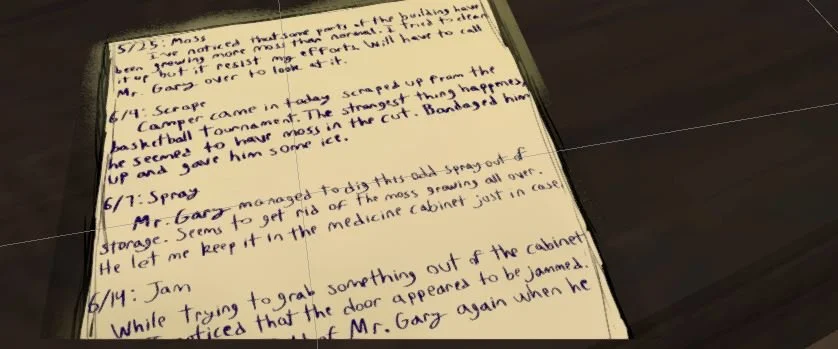 5/25: Moss
I've noticed that some parts of the building have
been growing more moss than normal. I tried to clean
it up but it resist my efforts. Will have to call
Mr. Gary over to look at it.
6/4: Scrape
Camper came in today scraped up from the
basketball tournament. The strangest thing happened,
he seemed to have moss in the cut. Bandaged him
up and gave him some ice.
6/7: Spray
Mr. Gary managed to dig this odd spray out of
storage. Seems to get rid of the moss growing all over.
He let me keep it in the medicine cabinet just in case.
6/14: Jam
While trying to grab something out of the cabinet
I noticed that the door appeared to be jammed.
of Mr. Gary again when he